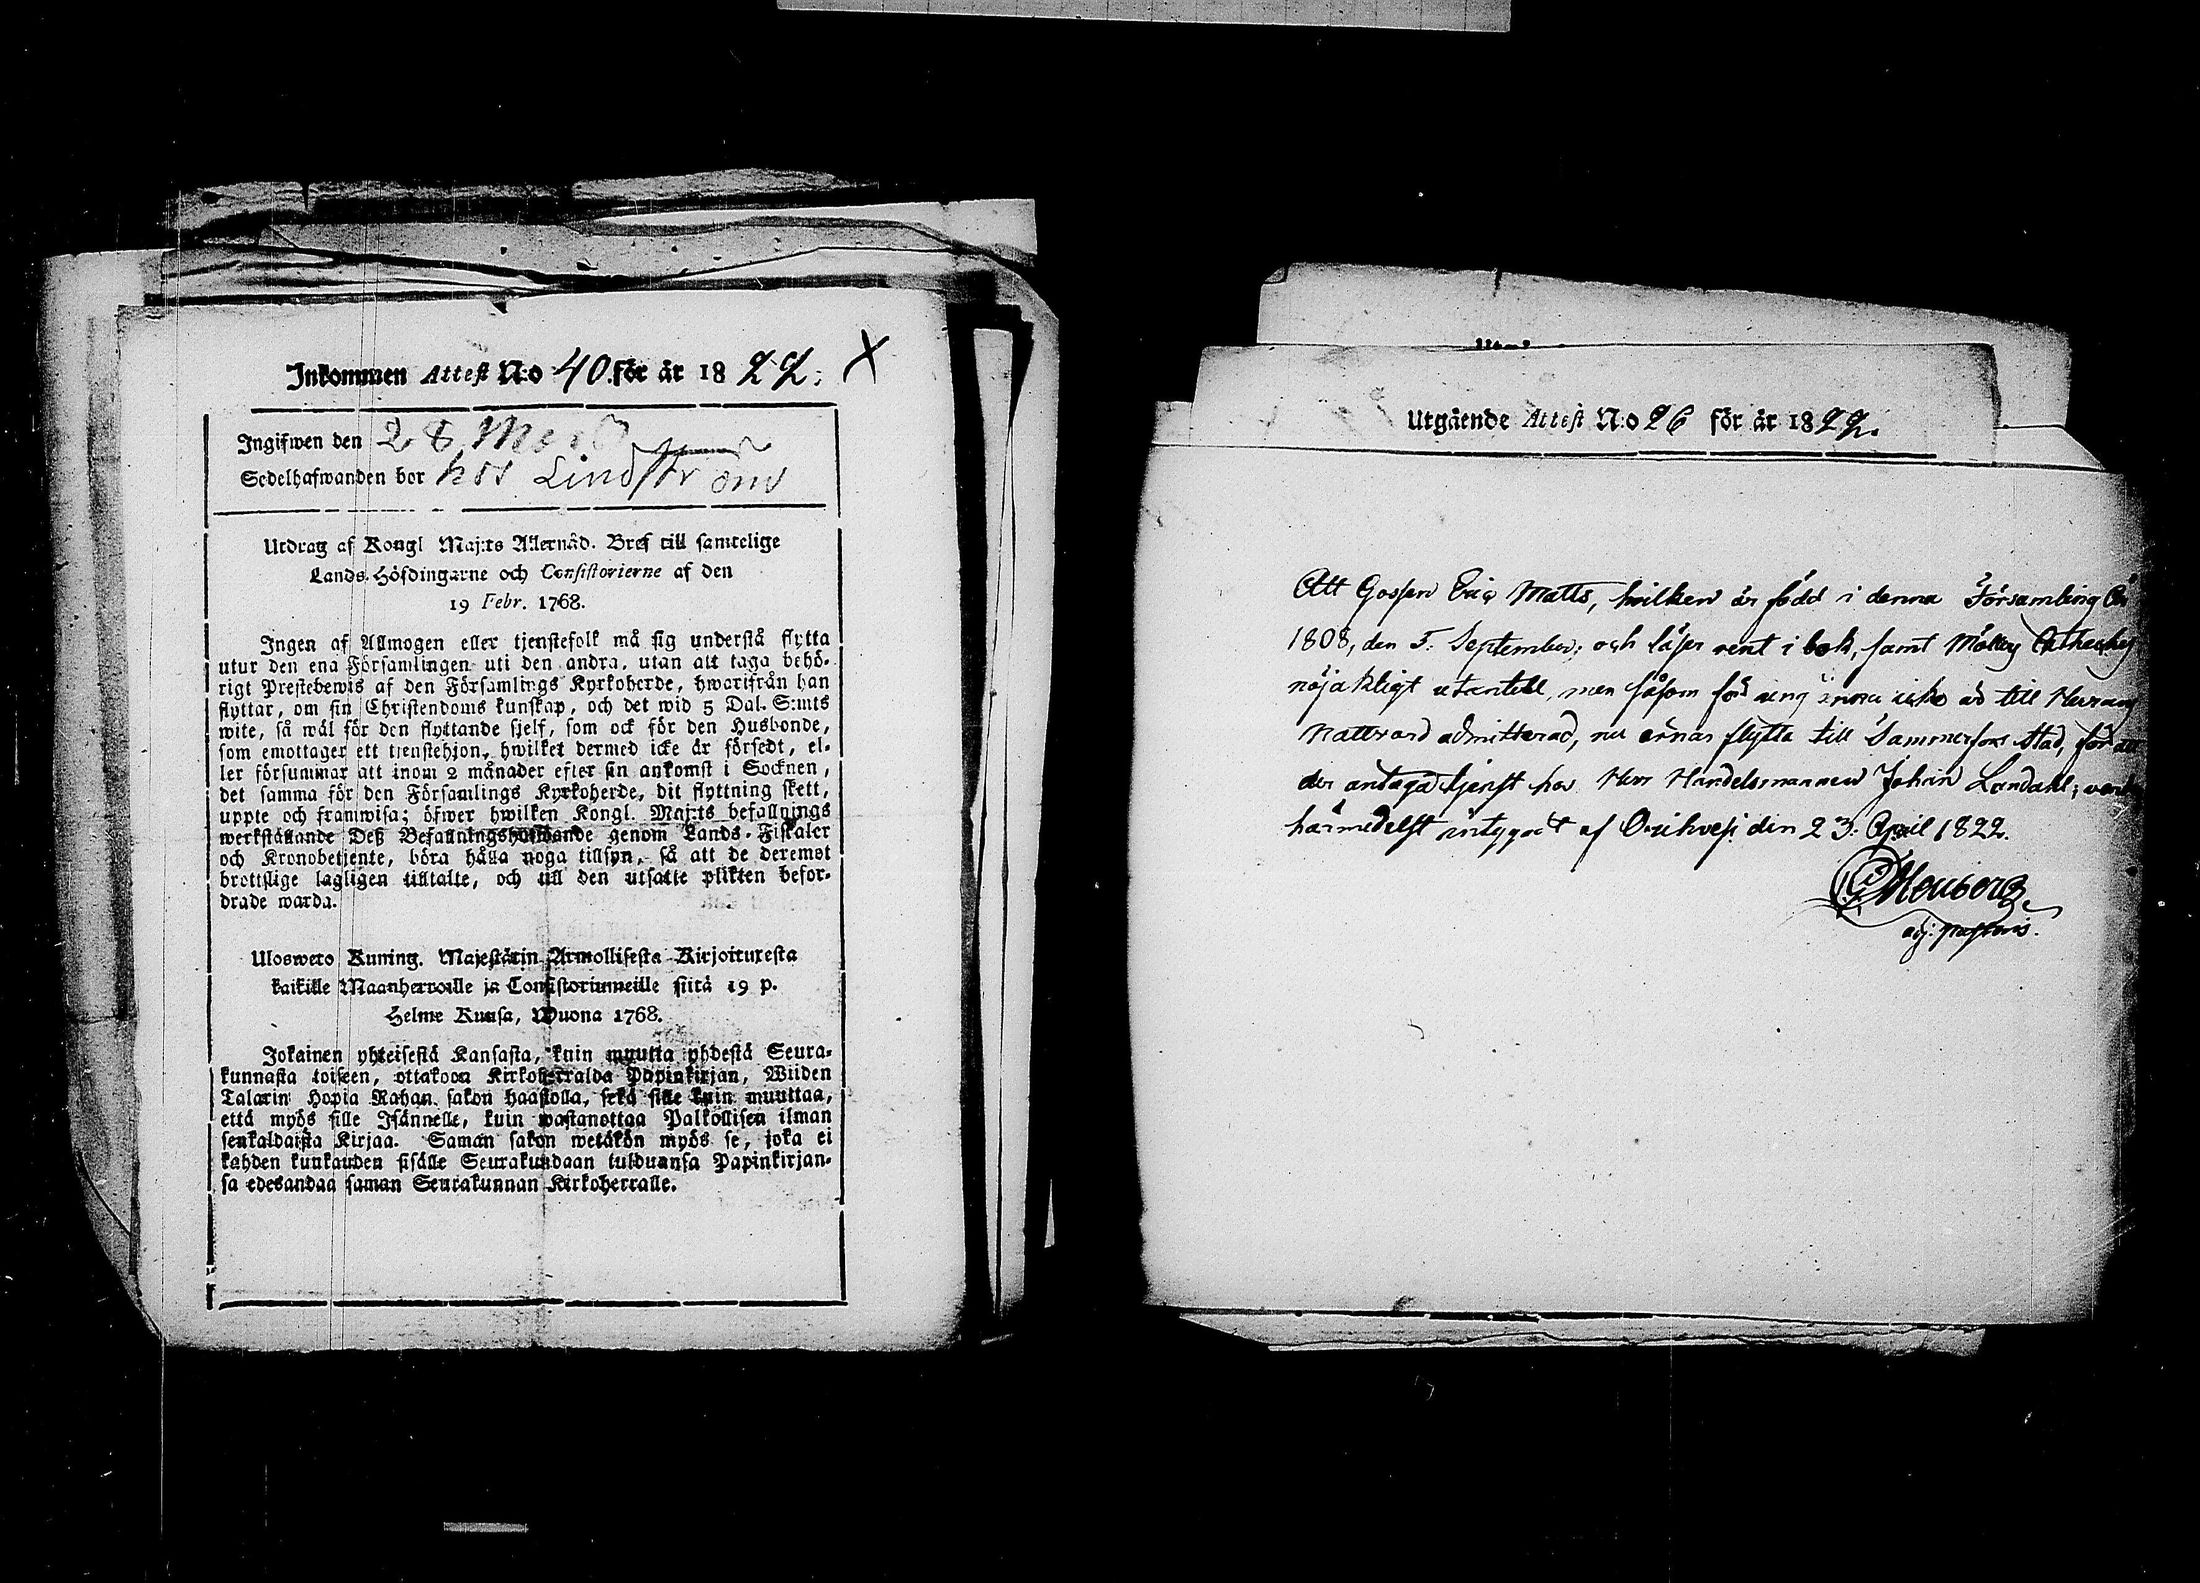 Inkommen Attest N:o 40 för år 1822. X
Ingifwen den 28
Sedelhafwanden bor hos Lindström
Utdrag af Kongl Maj:ts Allernåd. Bref till samtelige
Lands-Höfdingarne och Consistorierne af den
19 Febr. 1768.
Ingen af Allmogen eller tjenstefolk må sig understå flytta
utur den ena Församlingen uti den andra, utan att taga behö-
rigt Prestebewis af den Församlings Kyrkoherde, hwarifrån han
flyttar, om sin Christendoms kunskap, och det wid 5 Dal. S:mts
wite, så wäl för den flyttande sjelf, som ock för den Husbonde,
som emottager ett tjenstehjon, hwilket dermed icke är försedt, el-
ler försummar att inom 2 månader efter sin ankomst i Socknen,
det samma för den Församlings Kyrkoherde, dit flyttning skett,
uppte och framwisa; öfwer hwilken Kongl. Maj:ts befallnings
werkställande Deß Befallningshafwande genom Lands-Fiskaler
och Kronobetjente, böra hålla noga tillsyn, så att de deremot
brottslige lagligen tilltalte, och till den utsatte plikten befor-
drade warda.
Ulosweto Kuning. Majestätin Armollisesta Kirjoituxesta
kaikille Maanherroille ja Consistoriumeille siitä 19 p.
Helme Kuusa, Wuona 1768.
Jokainen yhteisestä Kansasta, kuin muutta yhdestä Seura-
kunnasta toiseen, ottakoon Kirkoherralda Papinkirjan, Wiiden
Talarin Hopia Rahan sakon haastolla, sekä sille kuin muuttaa,
että myös sille Isännelle, kuin wastanottaa Palkollisen ilman
senkaldaista Kirjaa. Saman sakon wetäkön myös se, joka ei
kahden kuukauden sisälle Seurakundaan tulduansa Papinkirjan-
sa edesandaa saman Seurakunnan Kirkoherralle.
Utgående Attest N:o 26 för år 1822.
Att Gossen Eric Matts, hvilken är född i denna Församling År
1808, den 5. September, och läser rent i bok, samt
nöjaktigt utantill, men såsom för ung ännu icke
Nattvard admitterad, nu ärnar flytta till Tammerfors Stad, för att
der antaga tjenst hos Herr Handelsmannen Johan Londahl;
härmedelst intygadt af Orihvesi den 23. April 1822.
adj: pastoris.